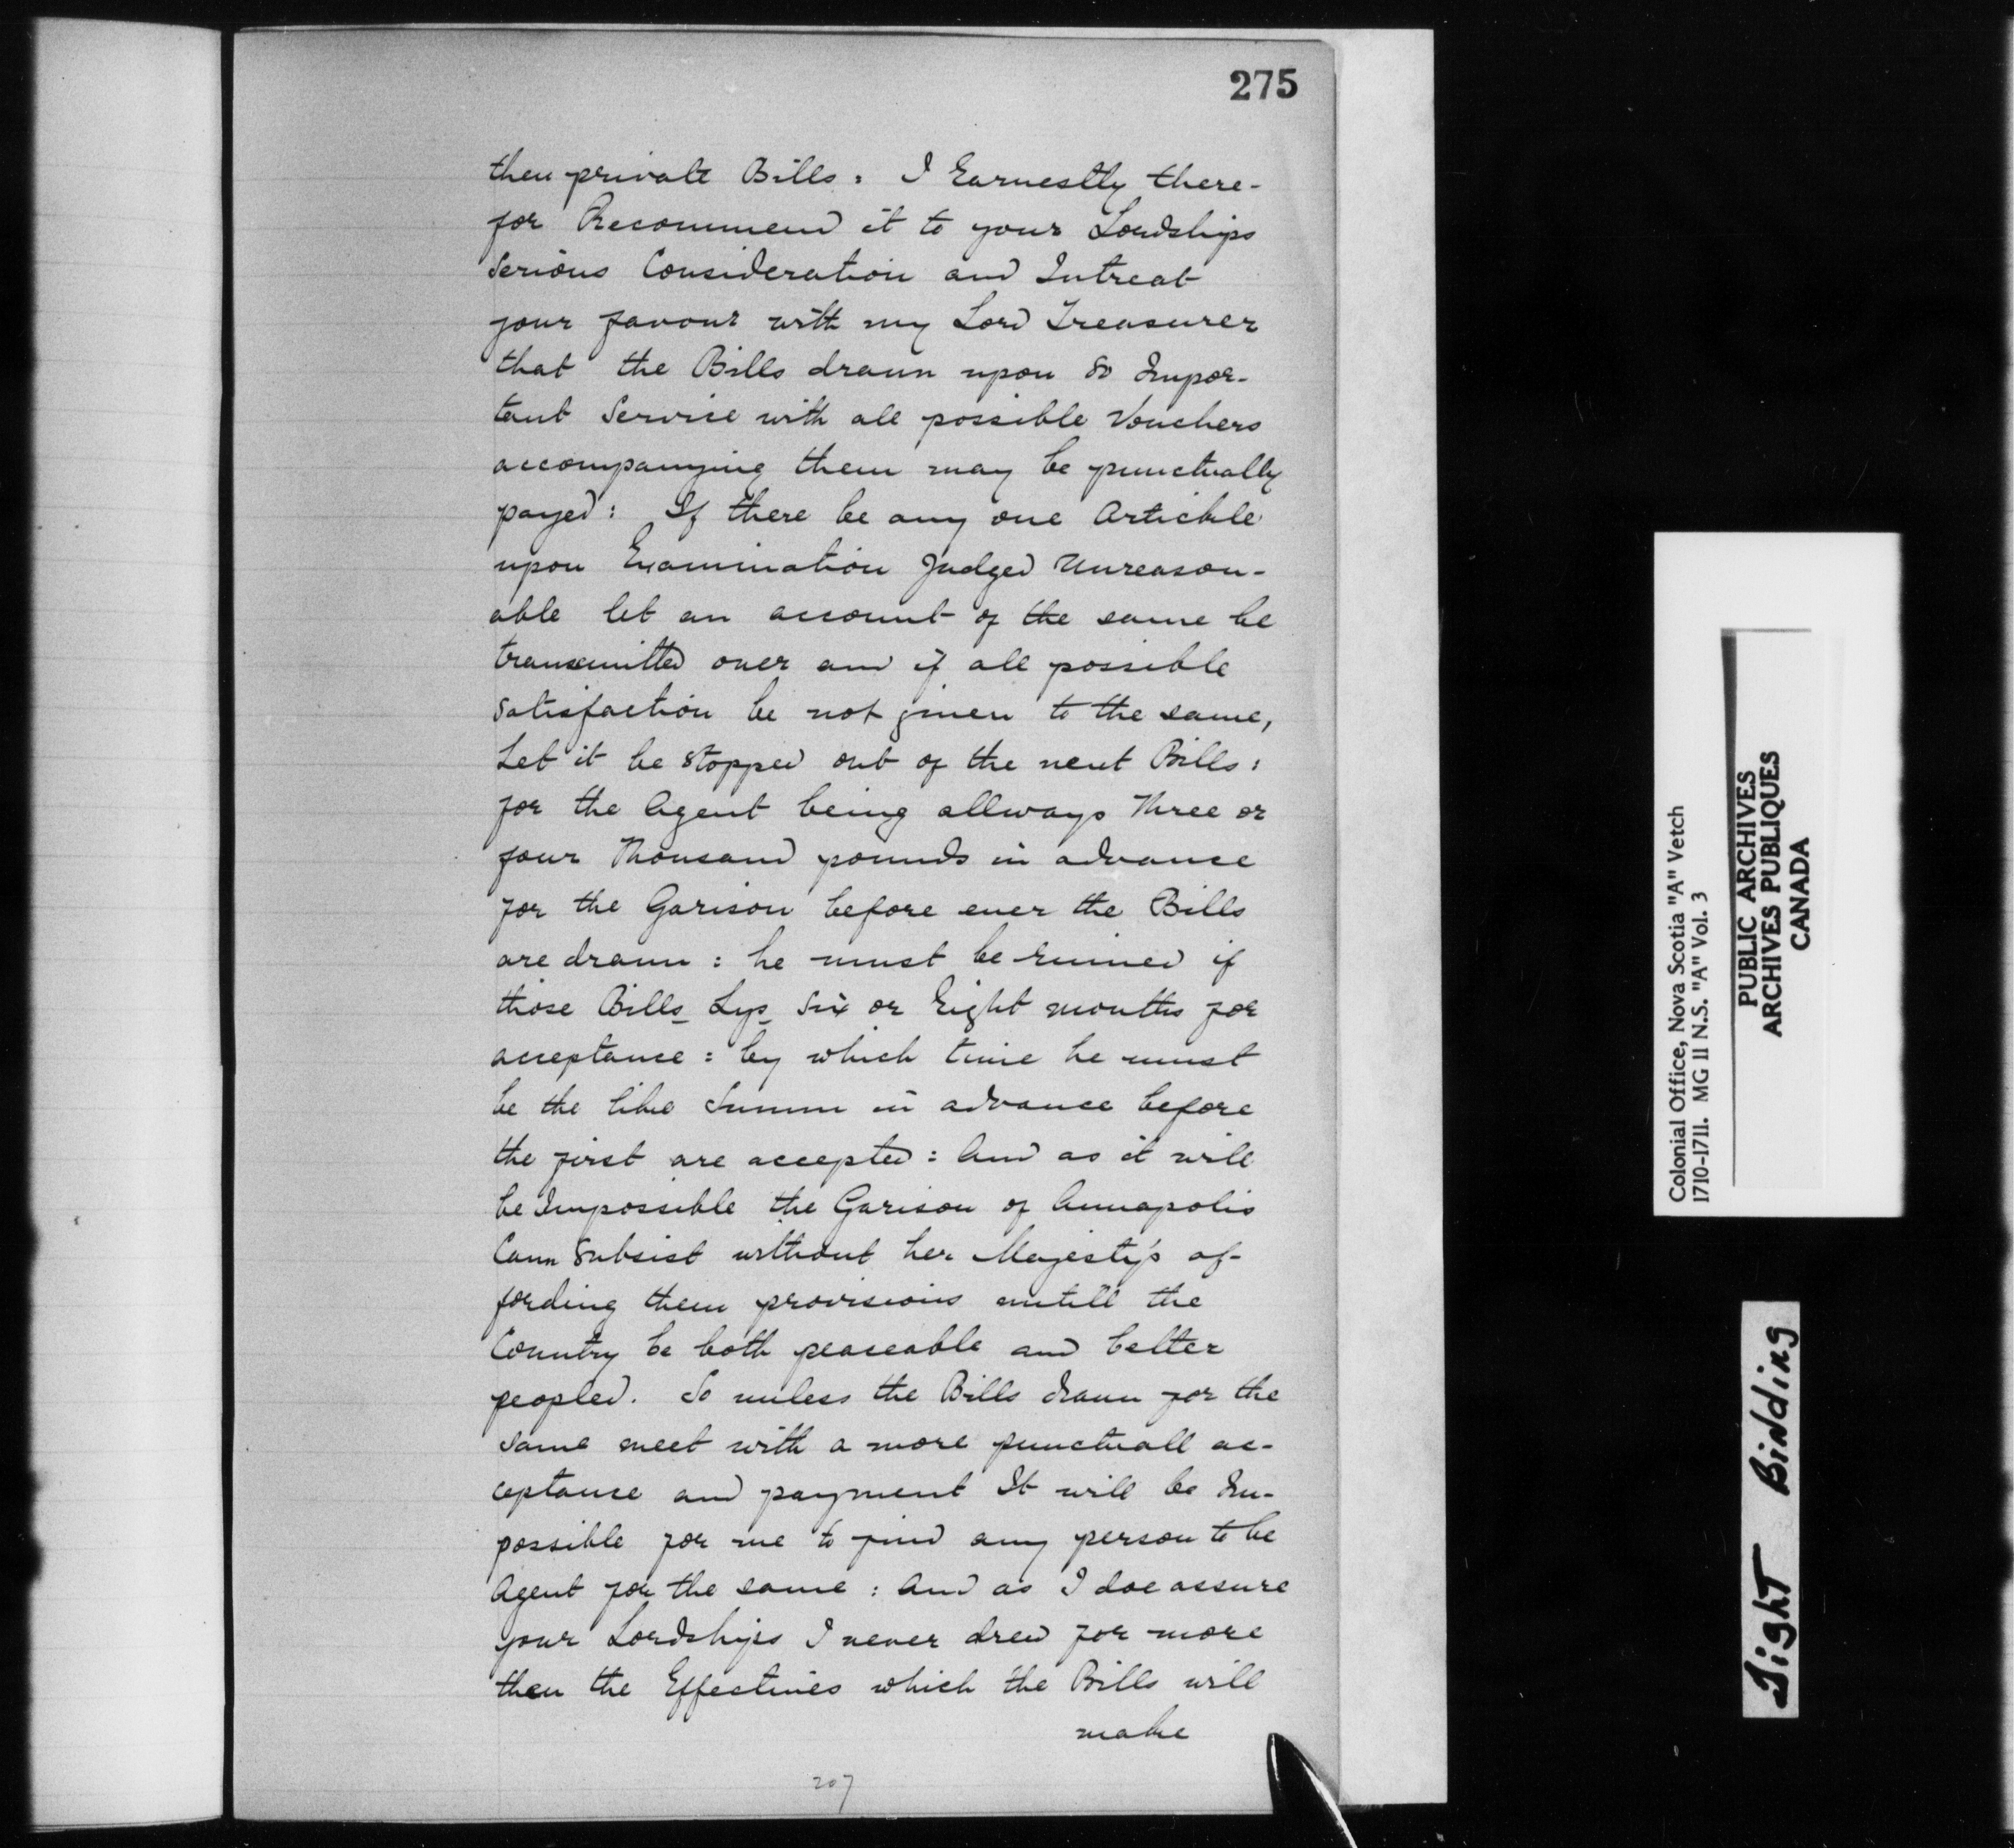 275
then private Bills: I Earnestly there-
for Recommend it to your Lordships
Serious Consideration and Intreat
your favour with my Lord Treasurer
that the Bills drawn upon so Impor-
tant Service with all possible Vouchers
accompanying them may be punctually
payed: If there be any one Artickle
upon Examination Judged Unreason-
able let an account of the same be
transmitted over and if all possible
Satisfaction be not given to the same,
Let it be Stopped out of the next Bills:
for the Agent being allways Three or
four Thousand pounds in advance
for the Garison before ever the Bills
are drawn: he must be ruined if
those Bills Lys Six or Eight months for
acceptance: by which time he must
be the like Summ in advance before
the first are accepted: And as it will
be Impossible the Garison of Annapolis
Cann Subsist without her Majesty's af-
fording them provisions untill the
Country be both peaceable and better
peopled. So unless the Bills drawn for the
same meet with a more punctuall ac-
ceptance and payment It will be Im-
possible for me to find any person to be
Agent for the same: And as I doe assure
your Lordships I never drew for more
then the Effectives which the Bills will
make
207
Colonial Office, Nova Scotia "A" Vetch
1710-1711. MG 11 N.S. "A" Vol. 3
PUBLIC ARCHIVES
ARCHIVES PUBLIQUES
CANADA
Tight Binding